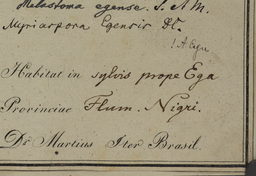 Melastoma egense. S. A M.
Myriaspora Egensis DC.
! A Ega
Habitat in sylvis prope Ega
Provinciae Flum. Nigri.
Dr Martius Iter Brasil.